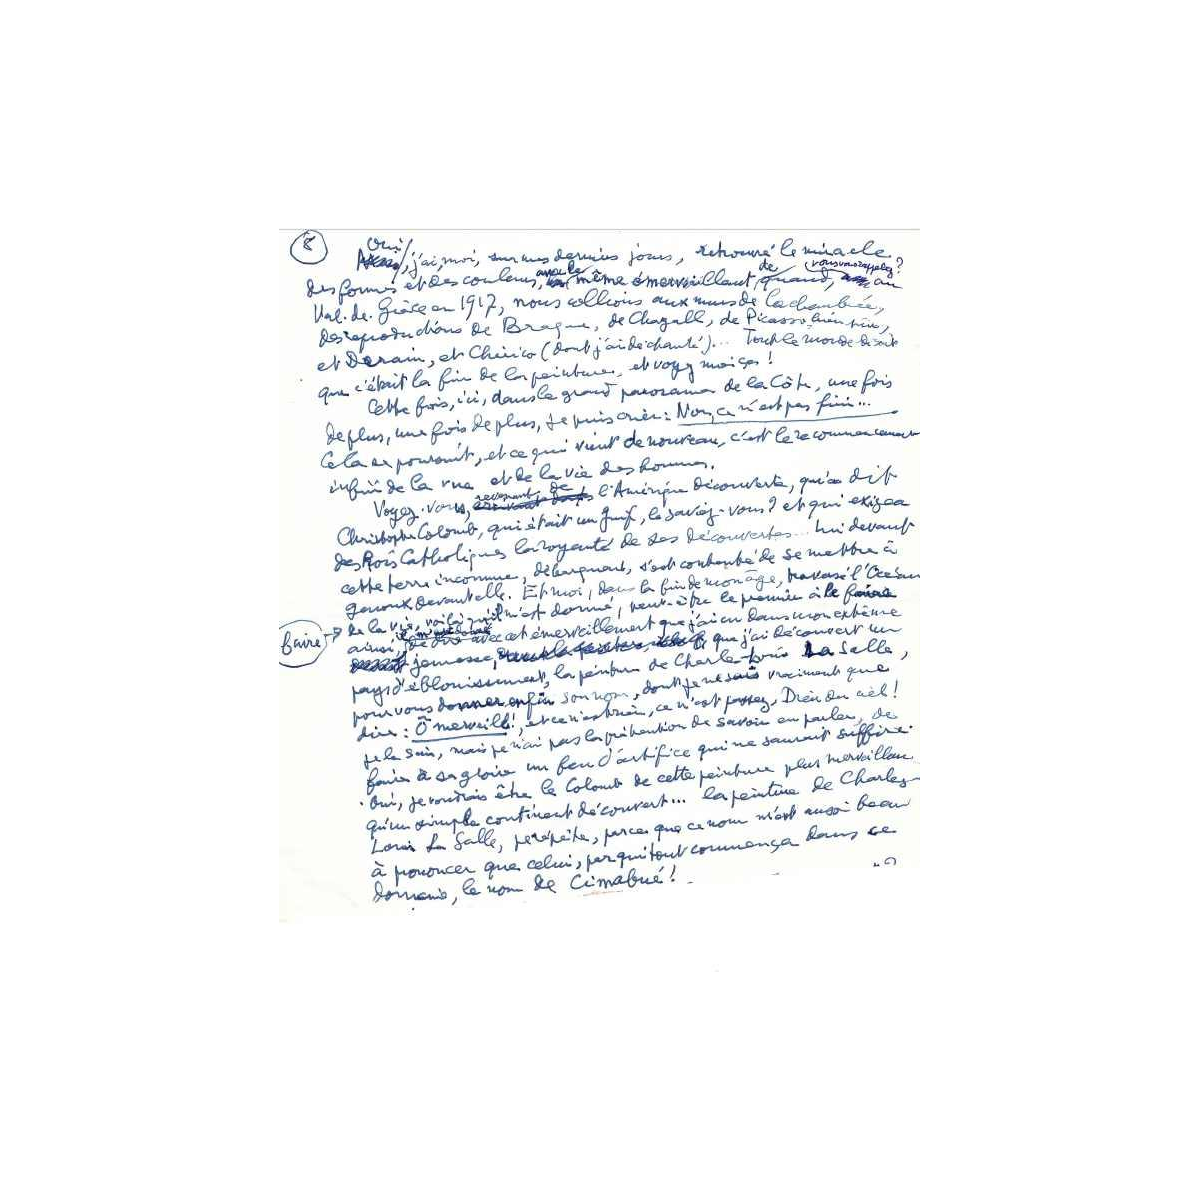 8
Oui, j'ai, moi, sur mes derniers jours, retrouvé le miracle
des formes et des couleurs, avec le même émerveillant de quand, vous vous rappelez? au
Val-de-Grâce en 1917, nous collions aux murs de la chambrée,
des reproductions de Braque, de Chagall, de Picasso bien sûr,
et Derain, et Chirico (dont j'ai déchanté)... Tout le monde disait
que c'était la fin de la peinture, et voyez moi ça!
Cette fois, ici, dans le grand panorama de la Côte, une fois
de plus, une fois de plus, je puis crier: Non, ce n'est pas fini...
Cela se poursuit, et ce qui vient de nouveau, c'est le recommencement
infini de la vue et de la vie des hommes.
Voyez-vous, revenant de l'Amérique découverte, qu'a dit
Christophe Colomb, qui était un Juif, le savez-vous? et qui exigea
des Rois Catholiques la royauté de ses découvertes... lui devant
cette terre inconnue, débarquant, s'est contenté de se mettre à
genoux devant elle. Et moi, dans la fin de mon âge, travers l'Océan
de la vie, voilà qu'il m'est donné, peut-être le premier à le faire
faire
ainsi, avec cet émerveillement que j'ai eu dans mon extrême
jeunesse, que j'ai découvert un
pays d'éblouissement, la peinture de Charles-Louis La Salle,
pour vous donner enfin son nom, dont je ne sais vraiment que
dire: Ô merveille!, et ce n'est rien, ce n'est pas assez, Dieu du ciel!
je le sais, mais je n'ai pas la prétention de savoir en parler, de
faire à sa gloire un feu d'artifice qui ne saurait suffire.
Oui, je voudrais être le Colomb de cette peinture plus merveilleuse
qu'un simple continent découvert... la peinture de Charles-
Louis La Salle, je répète, parce que ce nom n'est aussi beau
à prononcer que celui, par qui tout commença dans ce
domaine, le nom de Cimabué!